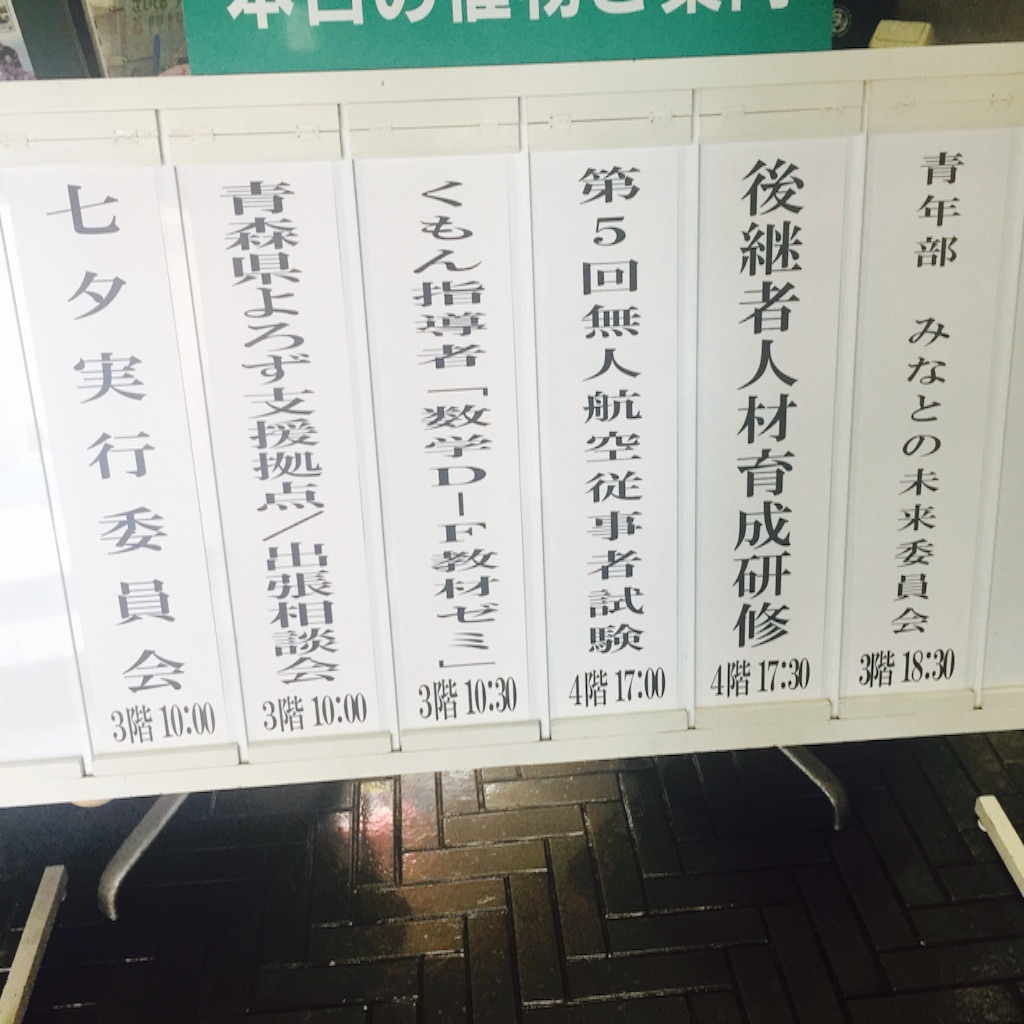 本日の催物ご案内
七夕実行委員会
3階 10:00
青森県よろず支援拠点/出張相談会
3階 10:00
くもん指導者「数学D-F教材ゼミ」
3階 10:30
第5回無人航空従事者試験
4階 17:00
後継者人材育成研修
4階 17:30
青年部 みなとの未来委員会
3階 18:30